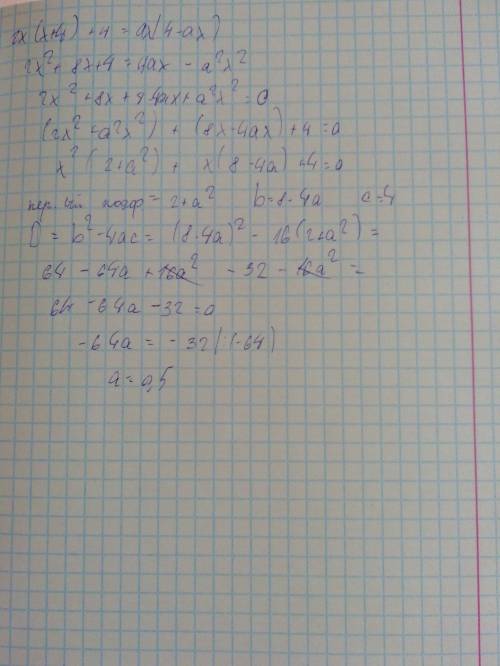 2x(x+4) + 4 = ax(4-ax)
2x² + 8x + 4 = 4ax - a²x²
2x² + 8x + 4 - 4ax + a²x² = 0
(2x² + a²x²) + (8x - 4ax) + 4 = 0
x²(2+a²) + x(8-4a) + 4 = 0
пер. ый коэф = 2+a² b = 8-4a c = 4
D = b² - 4ac = (8-4a)² - 16(2+a²) =
64 - 64a + 16a² - 32 - 16a² =
64 - 64a - 32 = 0
-64a = -32 |:(-64)
a = 0,5